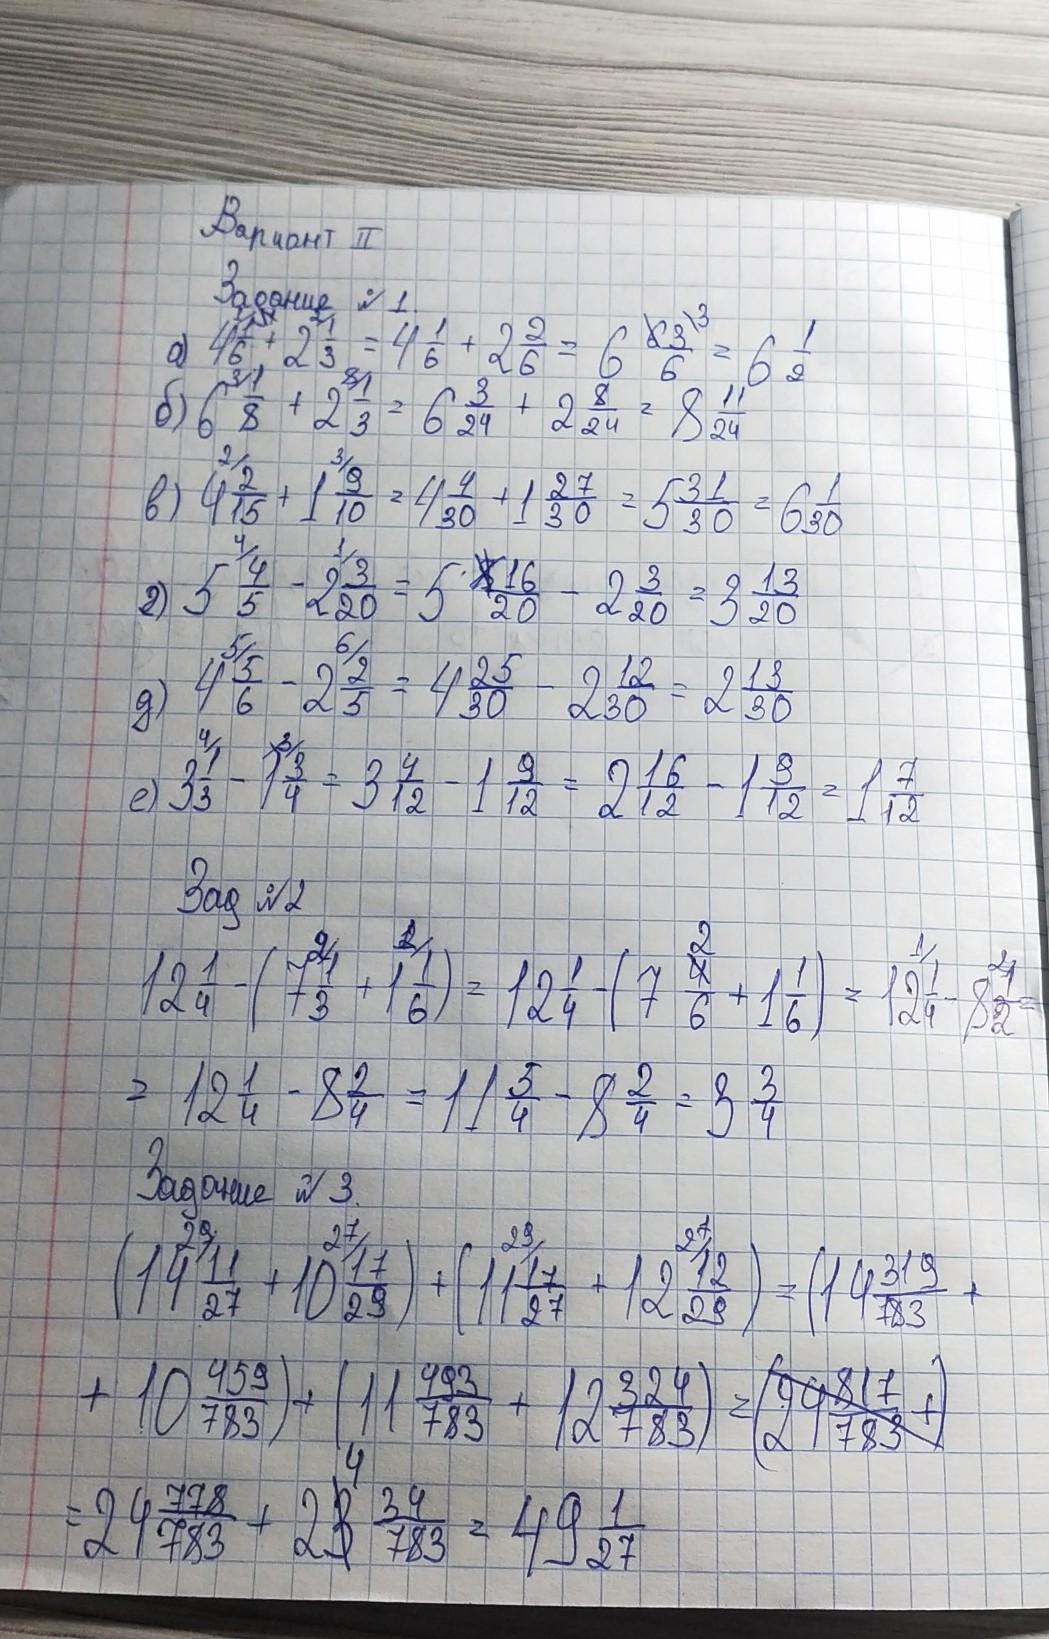 Вариант II
Задание №1.
а) 4 1/6 + 2 1/3 = 4 1/6 + 2 2/6 = 6 3/6 = 6 1/2
б) 6 1/8 + 2 1/3 = 6 3/24 + 2 8/24 = 8 11/24
в) 4 2/15 + 1 9/10 = 4 4/30 + 1 27/30 = 5 31/30 = 6 1/30
г) 5 4/5 - 2 3/20 = 5 16/20 - 2 3/20 = 3 13/20
д) 4 5/6 - 2 2/5 = 4 25/30 - 2 12/30 = 2 13/30
е) 3 1/3 - 1 3/4 = 3 4/12 - 1 9/12 = 2 16/12 - 1 9/12 = 1 7/12
Зад №2
12 1/4 - (7 1/3 + 1 1/6) = 12 1/4 - (7 2/6 + 1 1/6) = 12 1/4 - 8 1/2 =
= 12 1/4 - 8 2/4 = 11 5/4 - 8 2/4 = 3 3/4
Задание №3.
(14 11/27 + 10 17/29) + (11 17/27 + 12 12/29) = (14 319/783 +
+ 10 459/783) + (11 493/783 + 12 324/783) = (24 817/783 +)
= 24 778/783 + 24 34/783 = 49 1/27